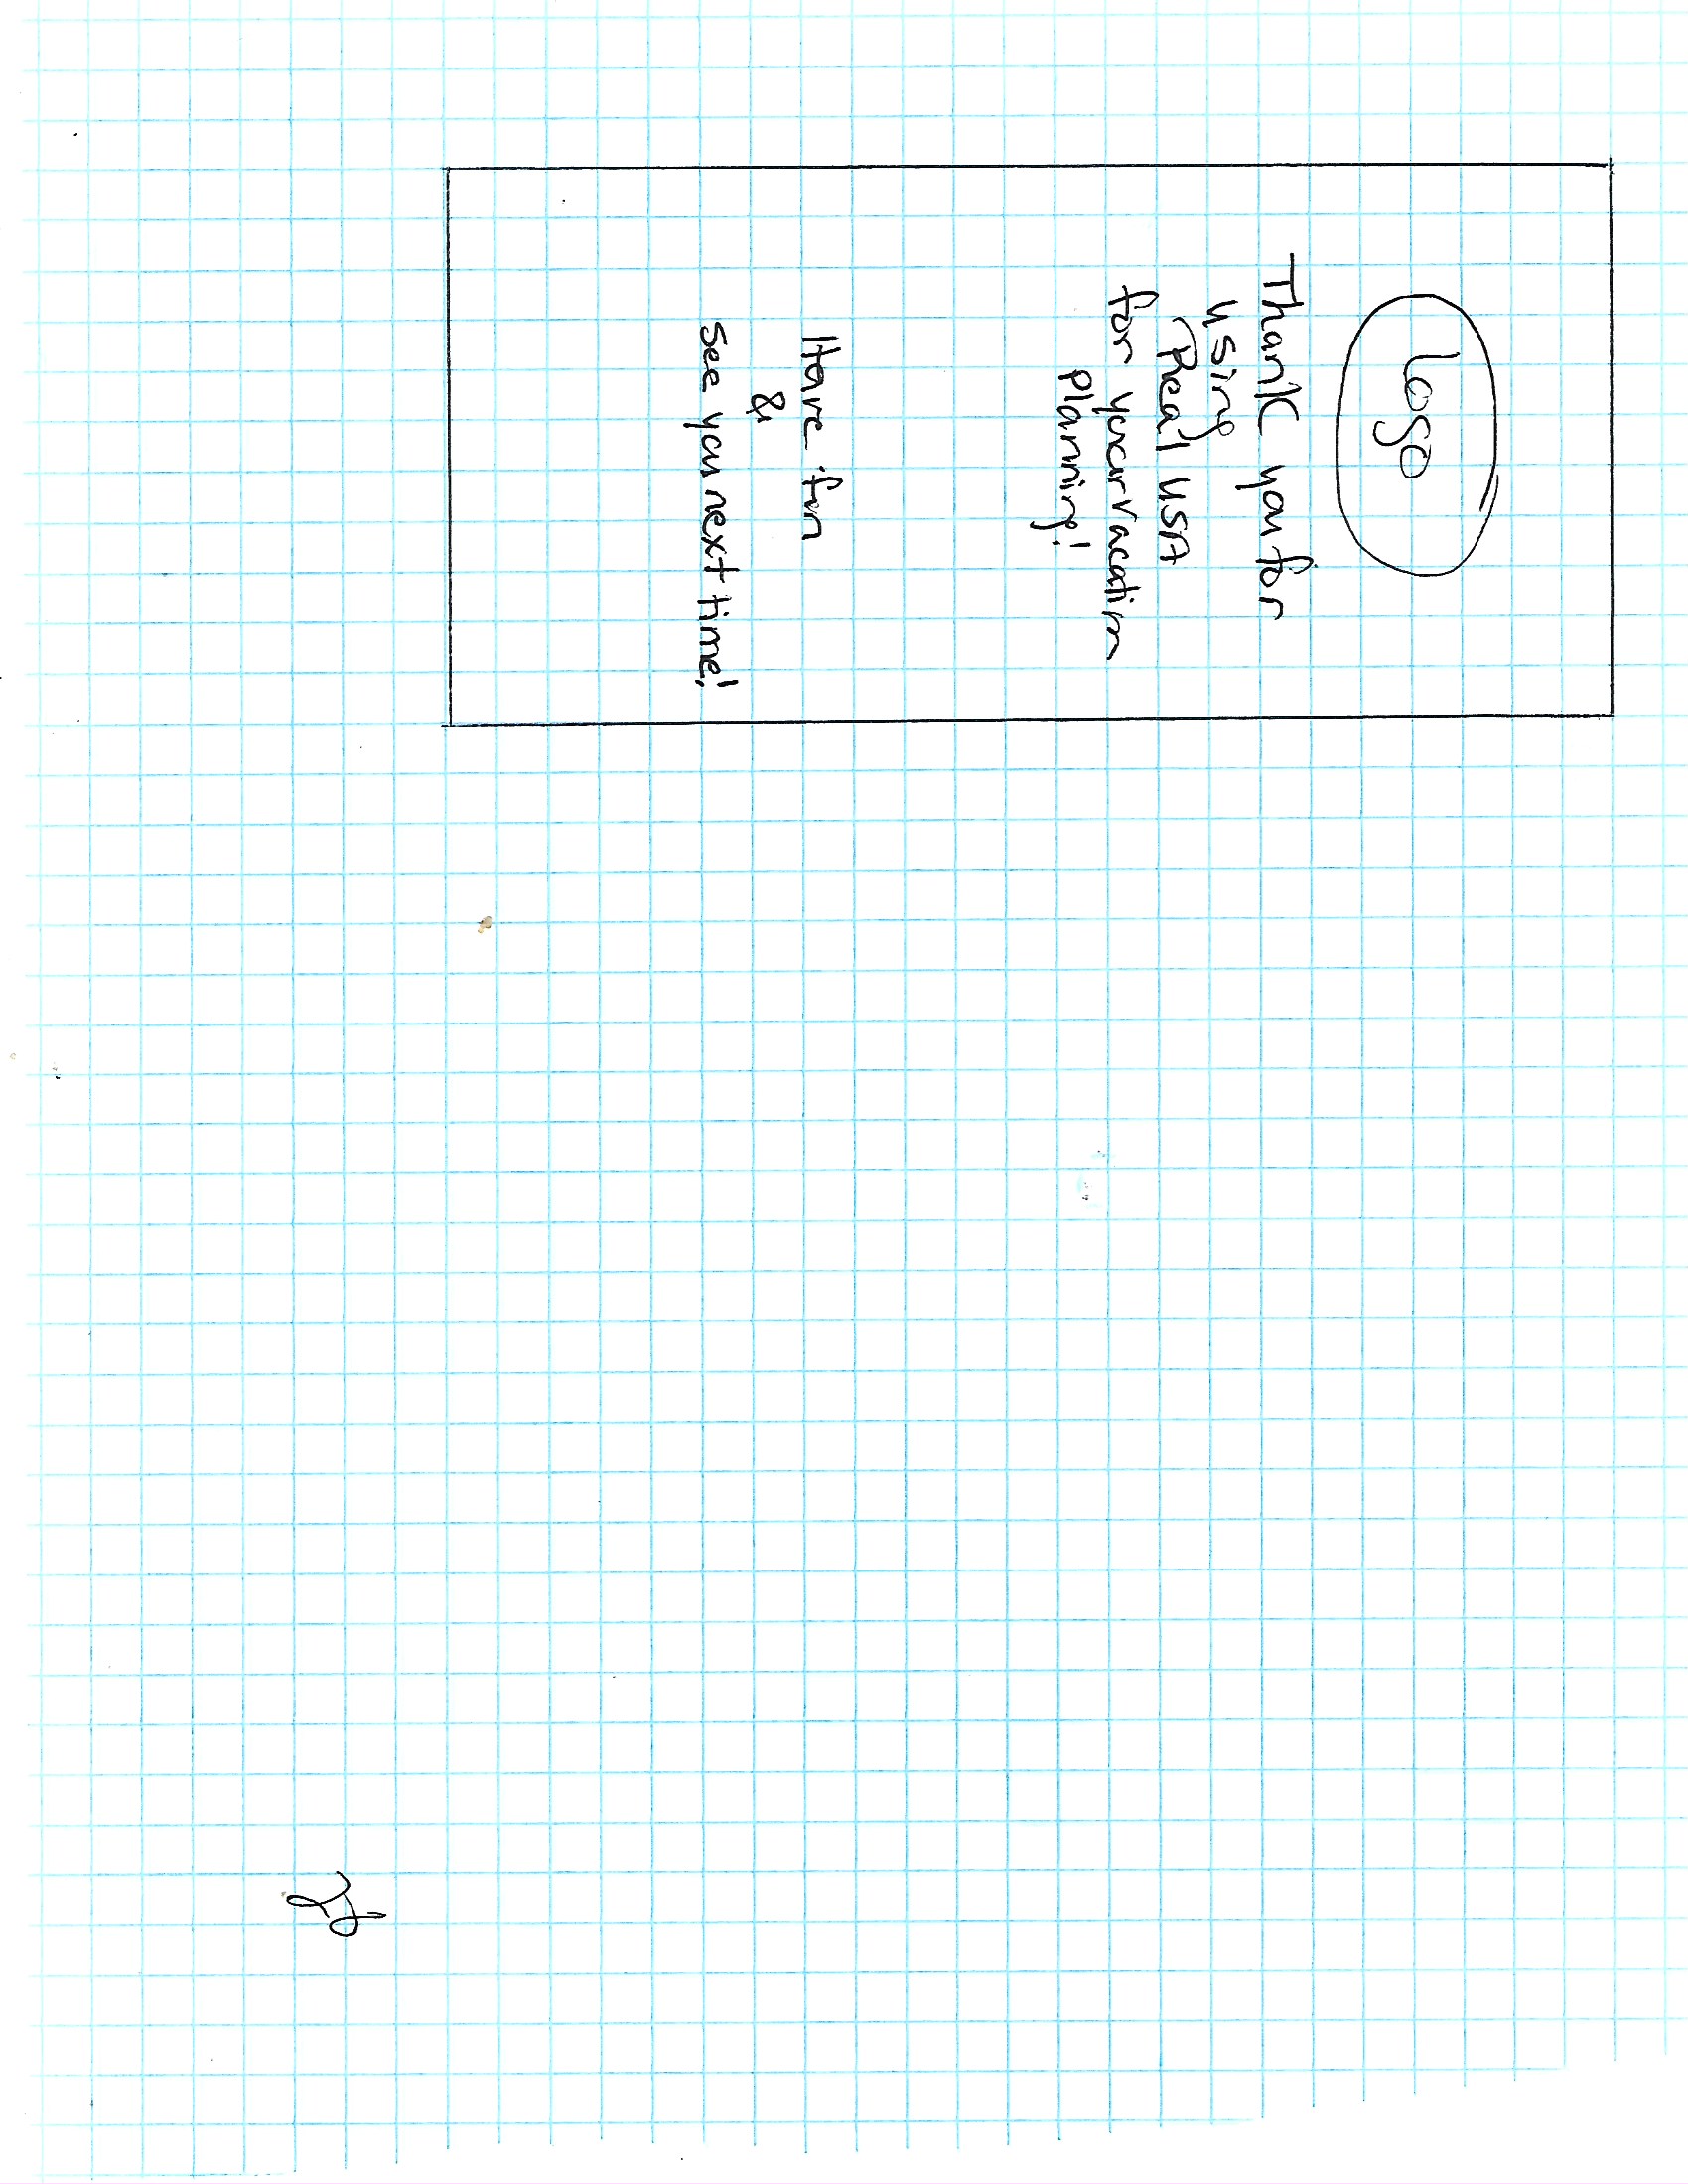 Logo
Thank you for
using
Real USA
for your vacation
planning!
Have fun
&
see you next time!